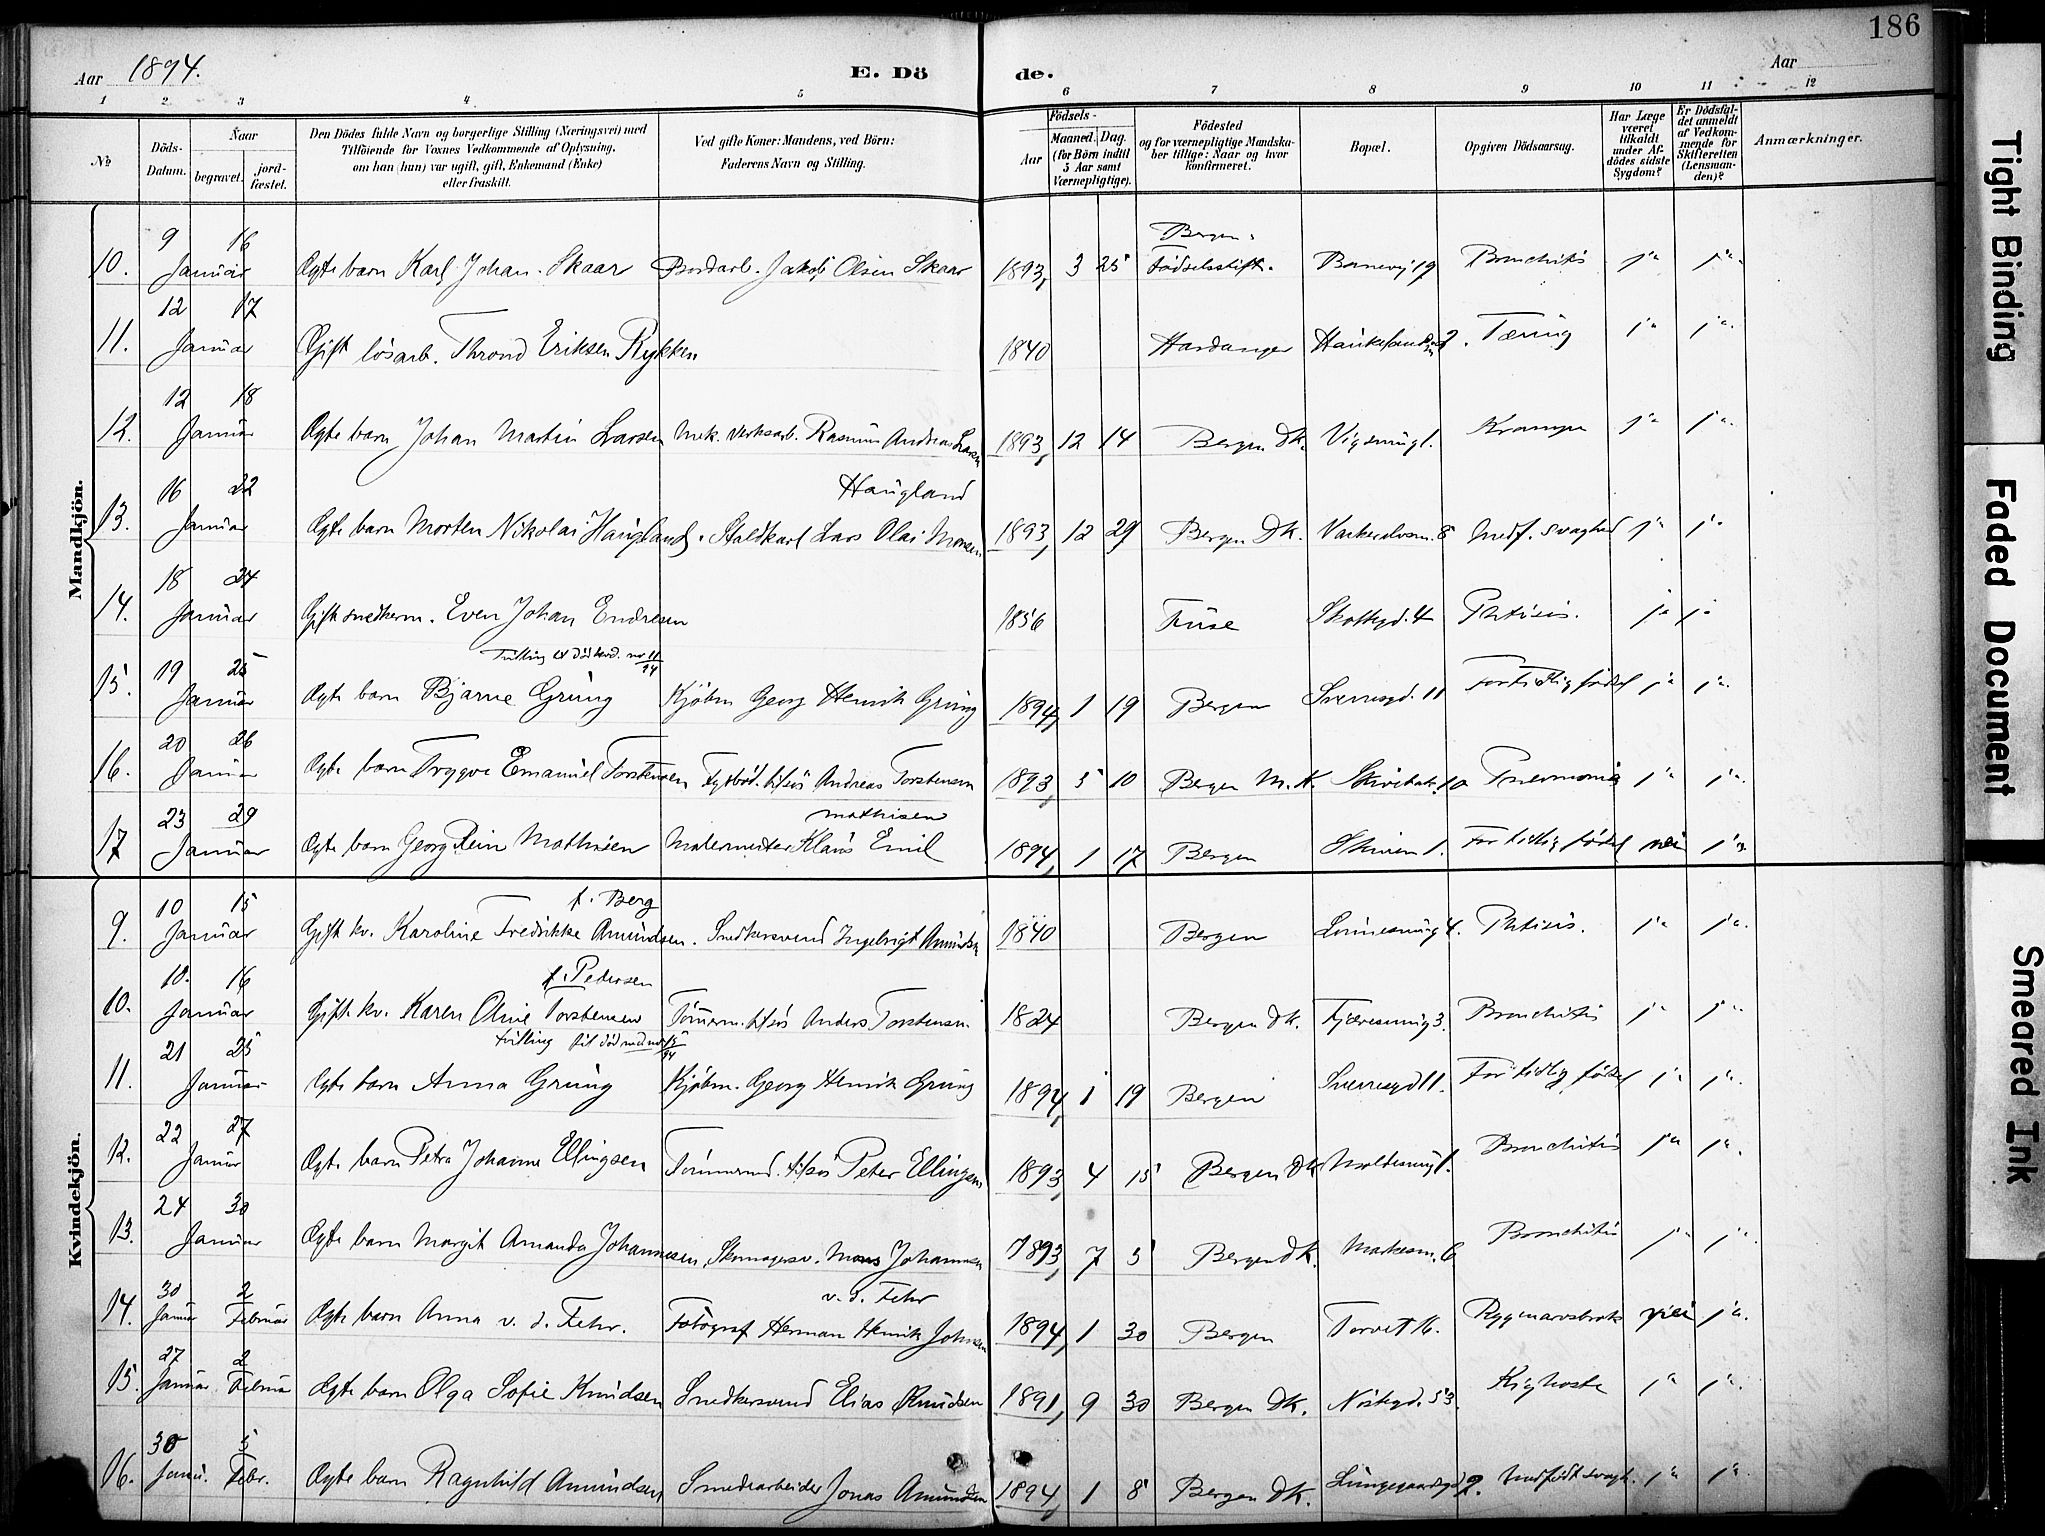 186
Aar 1894. E. Dö de. Aar
1 2 3 4 5 6 7 8 9 10 11 12
No
Döds-Datum.
Naar
begravet.
jord-fæstet.
Den Dödes fulde Navn og borgerlige Stilling (Næringsvei) med
Tilföiende for Voxnes Vedkommende af Oplysning,
om han (hun) var ugift, gift, Enkemand (Enke)
eller fraskilt.
Ved gifte Koner: Mandens, ved Börn:
Faderens Navn og Stilling.
Födsels-
Aar
Maaned.
Dag.
(for Börn indtil
5 Aar samt
Værnepligtige).
Födested
og for værnepligtige Mandska-
ber tillige: Naar og hvor
konfirmeret.
Bopæl.
Opgiven Dödsaarsag.
Har Læge
været
tilkaldt
under Af-
dödes sidste
Sygdom?
Er Dödsfal-
det anmeldt
af Vedkom-
mende for
Skifteretten
(Lensman-
den)?
Anmærkninger.
Mandkjön.
10. 9 Januar 16 Ægte barn Karl Johan Skaar Bordarb. Jakob Olsen Skaar 1893, 3 25 Bergen Fødselsstift. 19 Bronchitis ja ja
11. 12 Januar 17 Gift løsarb. Thrond Eriksen Rykken 1840 Hardanger 2. Tæring ja ja
12. 12 Januar 18 Ægte barn Johan Martin Larsen Mek. verksarb. Rasmus Andreas Larsen 1893, 12 14 Bergen Dk. 1. Krampe ja ja
13. 16 Januar 22 Ægte barn Morten Nikolai Haugland. Staldkarl Lars Olai Monsen Haugland 1893, 12 29 Bergen Dk. 8 Medf. svaghed ja ja
14. 18 Januar 24 Gift snedkerm. Even Johan Endresen 1856 Fuse Skottegd. 4 Phtisis. ja ja
15. 19 Januar 25 Ægte barn Bjarne Grung Kjøbm Georg Henrik Grung 1894, 1 19 Bergen Sverresgd. 11 For tidlig fødsel ja ja
Tvilling til død kvd. nr 11/94
16. 20 Januar 26 Ægte barn Trygve Emanuel Torstensen Fyrbød. Andreas Torstensen 1893, 5 10 Bergen M. K. 10 Pneumonia ja ja
17 23 Januar 29 Ægte barn Georg Rein Mathisen Malermester Klaus Emil Mathisen 1894, 1 17 Bergen Skuren 1. For tidlig fødsel nei ja
Kvindekjön.
9. 10 Januar 15 Gift kv. Karoline Fredrikke Amundsen f. Berg Snedkersvend Ingebrigt Amundsen 1840 Bergen 4. Phtisis. ja ja
10. 10. Januar 16 Gift kv. Karen Oline Torstensen f. Pedersen Tømerm. Anders Torstensen 1824 Bergen Dk. 3. Bronchitis ja ja
11. 21 Januar 25 Ægte barn Anna Grung Kjøbm. Georg Henrik Grung 1894, 1 19 Bergen Sverresgd 11. For tidlig fødsel ja ja
tvilling til død md nr 15/94
12. 22 Januar 27 Ægte barn Petra Johanne Ellingsen Tømmermd. Peter Ellingsen 1893, 4 15 Bergen Dk 1. Bronchitis ja ja
13. 24 Januar 30 Ægte barn Margit Amanda Johannesen, Skomagersv. Mons Johannesen 1893, 7 5 Bergen Dk. 6 Bronchitis ja ja
14. 30 Januar 2 Februar Ægte barn Anna v. d. Fehr. Fotograf Herman Henrik Johnsen v. d. Fehr 1894, 1 30 Bergen Torvet 16. Rygmarvsbrok nei ja
15. 27 Januar 2 Februar Ægte barn Olga Sofie Knudsen Snedkersvend Elias Knudsen 1891, 9 30 Bergen Dk. Nøstegd. 53. Kighoste ja ja
16. 30 Janu. 5 Febr. Ægte barn Ragnhild Amundsen Smedarbeider Jonas Amundsen 1894, 1 8 Bergen Dk. 2. Medfødt svagh. ja ja
Tight Binding
Faded Document
Smeared Ink